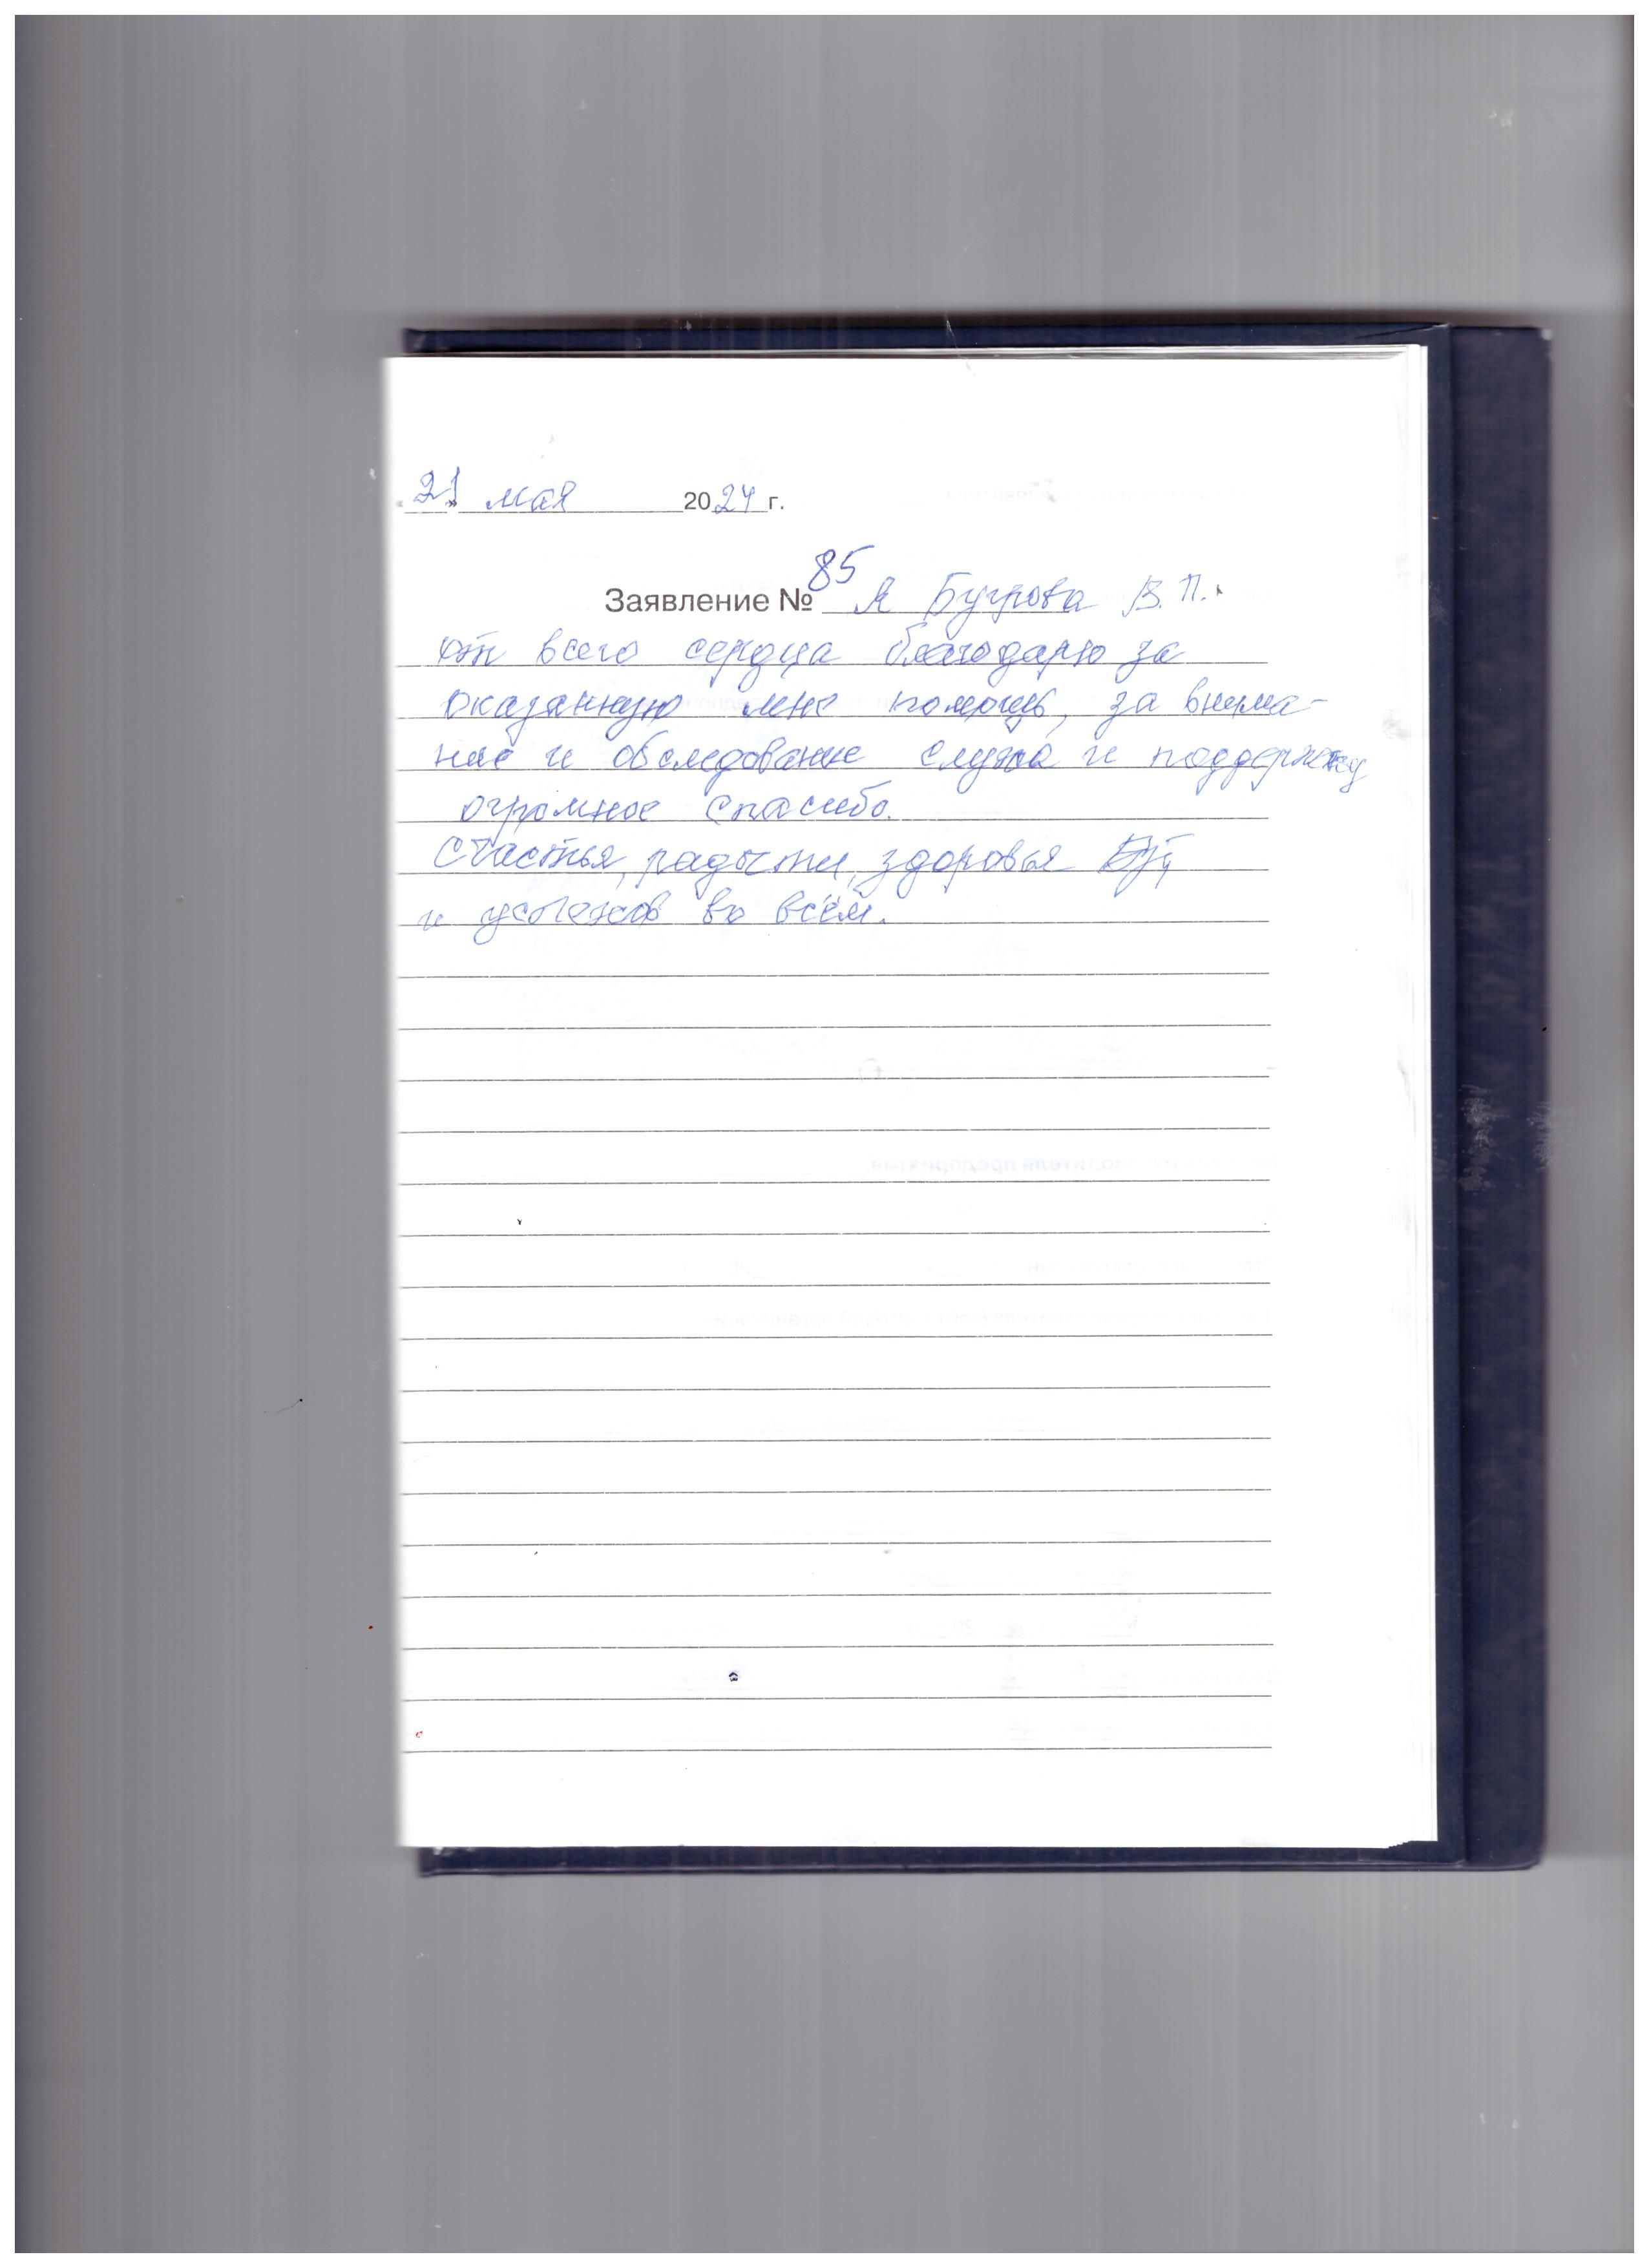 21 мая 2024 г.
Заявление № 85 Я Бугрова В.П.
от всего сердца благодарю за
оказанную мне помощь, за внима-
ние и обследование слуха и поддержку
огромное спасибо.
Счастья, радости, здоровья
и успехов во всём.